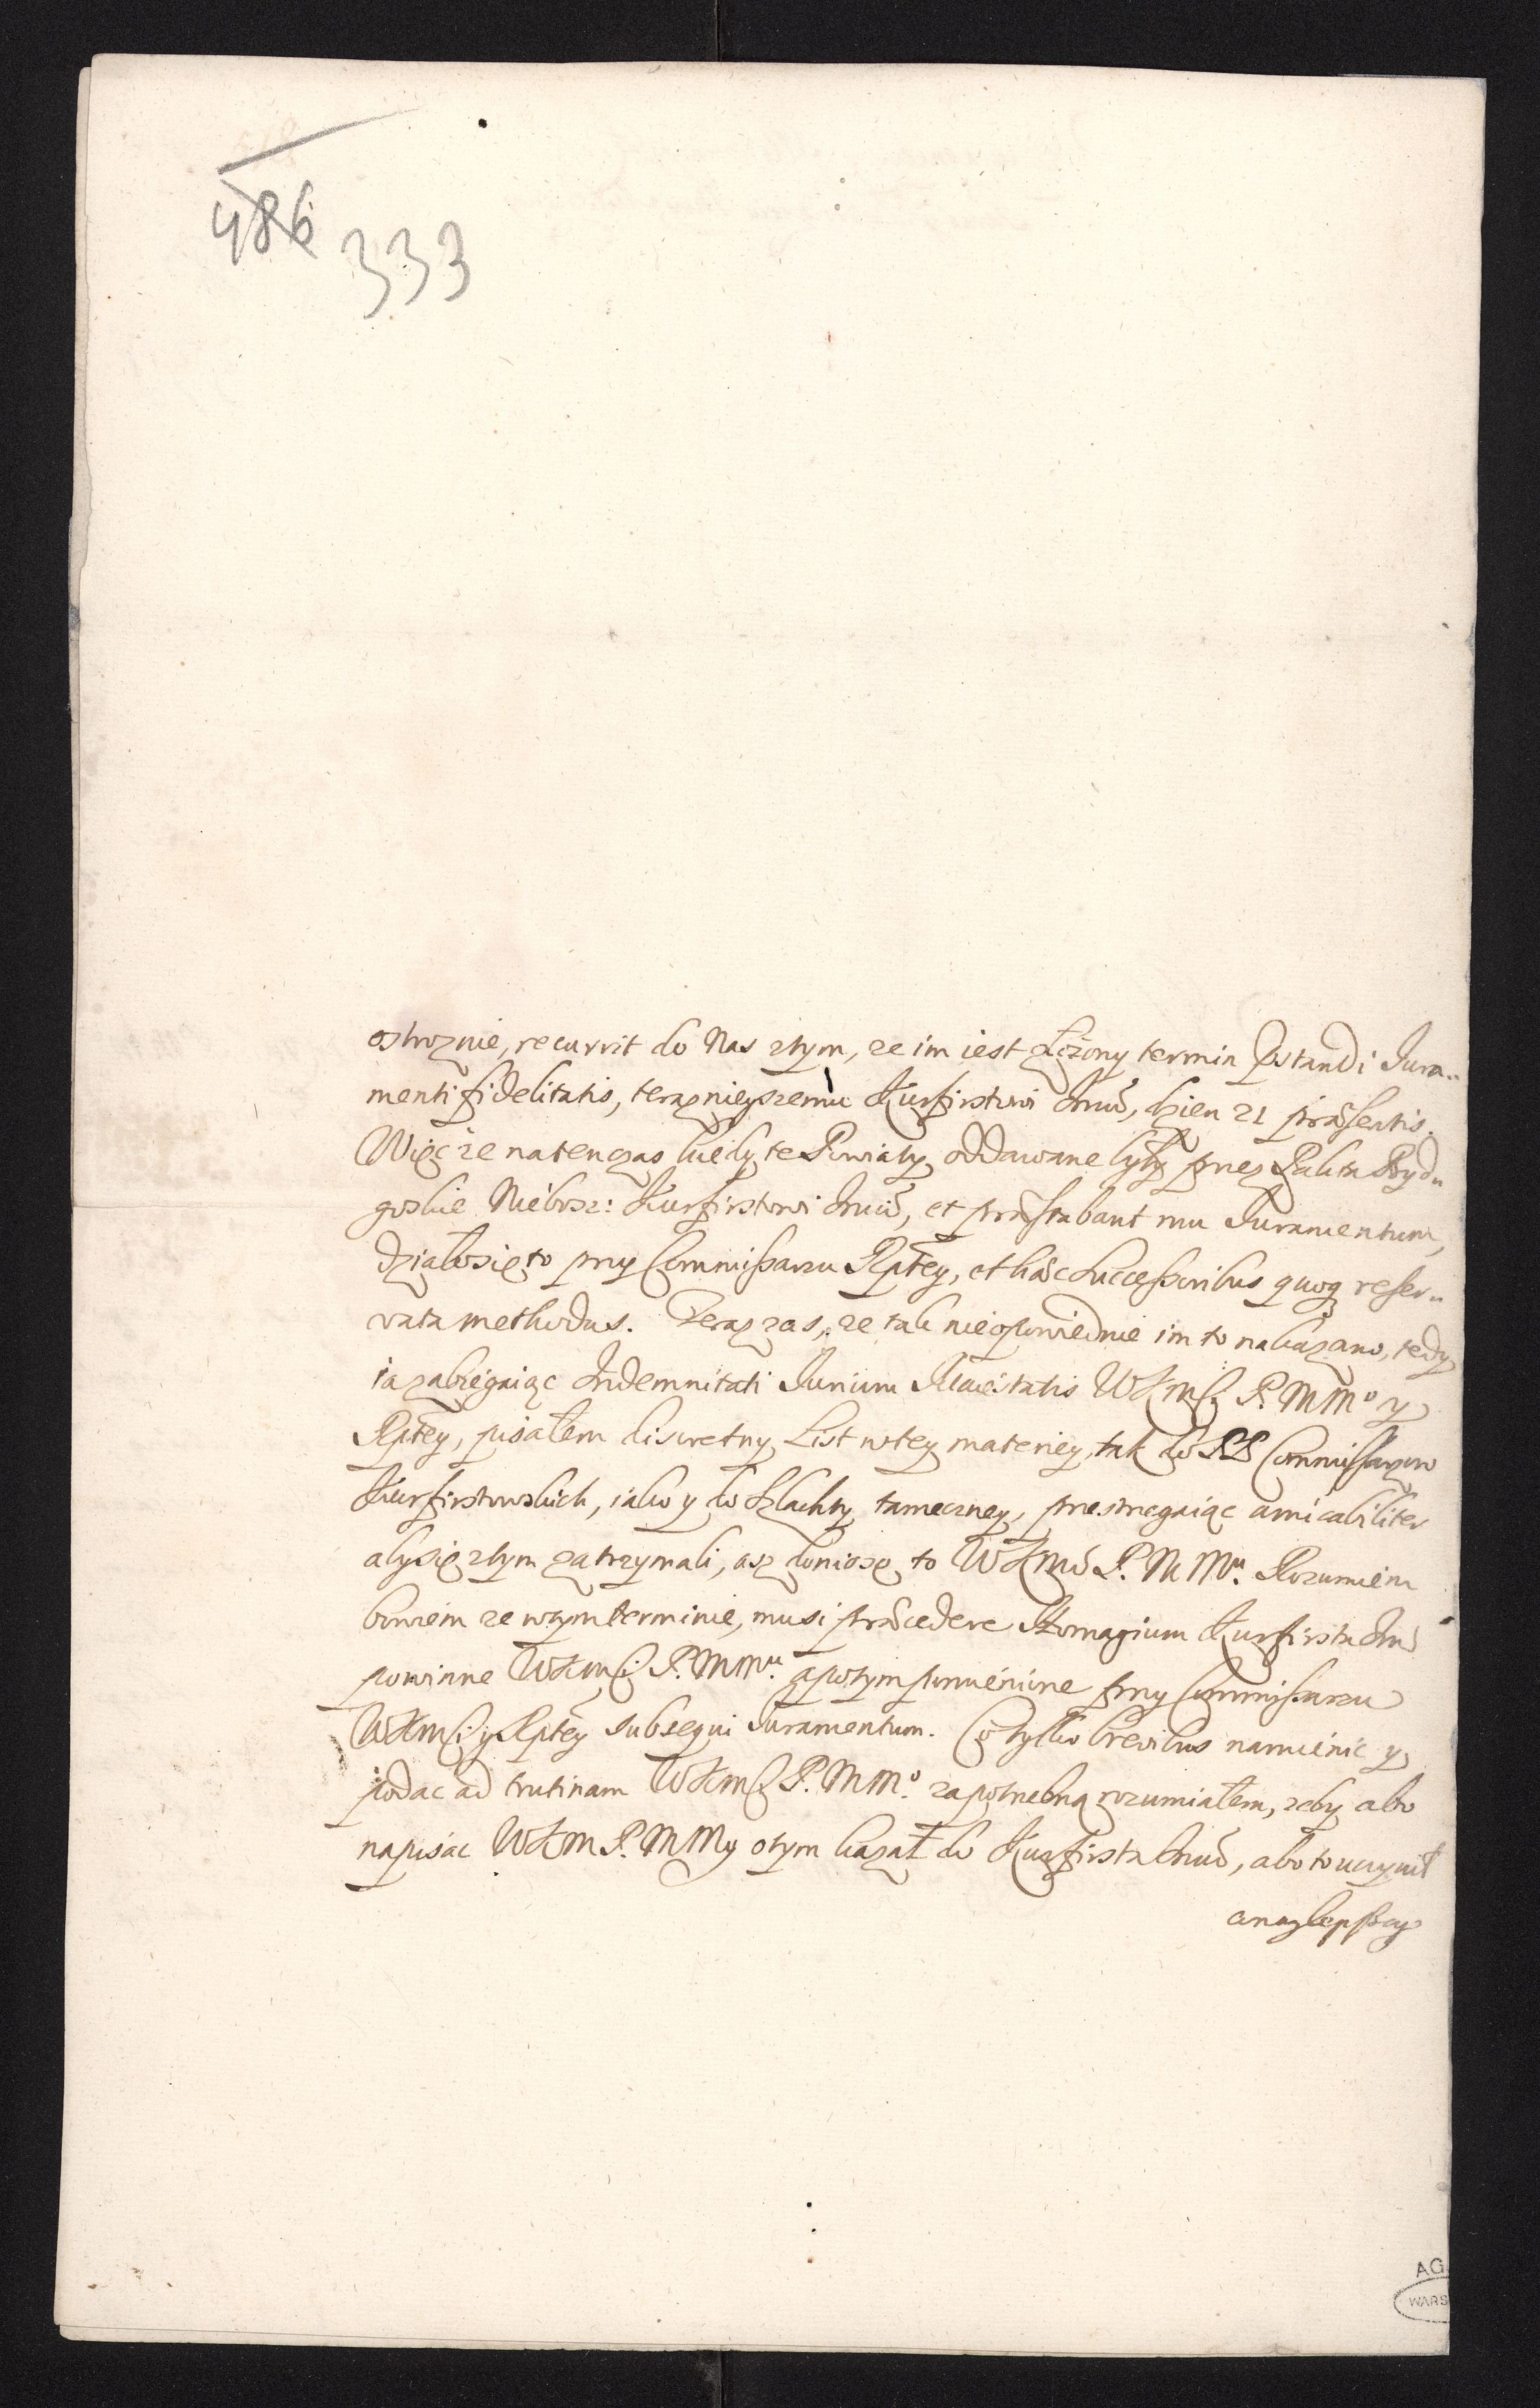 486 333
ostroznie, recurrit do Nas ztym, ze im iest złożony termin pstandi Jura-
menti fidelitatis, teraznieyszemu Kurfirstwi Jmci, dzien 21 præsentis.
Więc ze natenczas kiedy te Powiaty oddawane były przez Pakta Byd-
goskie Niebosz: Kurfirstowi Jmci, et præstabant mu Juramentum,
działosię to przy Commissarzu Rptey, et hæc Successoribus quoq reser-
vata methodus. Teraz zas, ze tak nieopowiednie im to nakazano, tedy
ia zabiegaiąc Indemnitati Jurium Maiestatis WKMCi P. M Mo y
Rptey, pisałem discretny List wtey materiey, tak do PP Commissarzow
Kurfirstowskich, iako y do Szlachty tameczney, przestrzegaiąc amicabiliter
aby się ztym zatrzymali, asz doniosę to WKMci P. M Mu. Rozumiem
bowiem ze wtym terminie, musi præcedere Homagium Kurfirsta Jmci
powinne WKMCi P. M Mu. apotym pomienione przy Commissarzu
WKMCi y Rptey subsequi Juramentum. Co tylko brevibus namienic y
podac ad trutinam WKMCi P. M Mo. zapotrzebną rozumiałem, zeby abo
napisac WKM P. M My otym kazał do Kurfirsta Jmci, abo to uczynił
cnaylepszey
AG
WARS